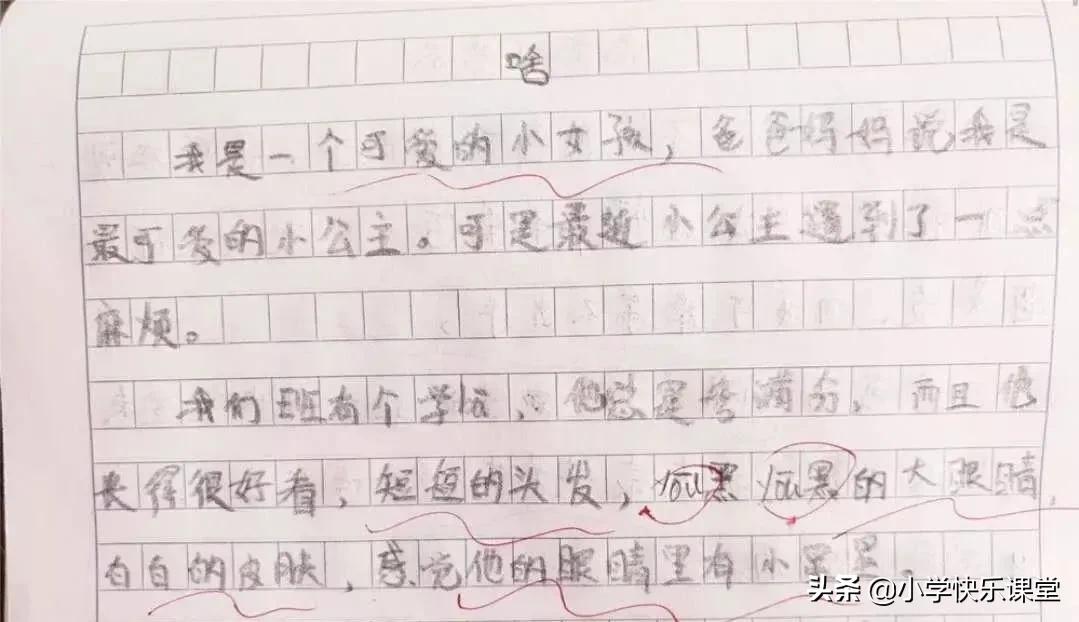 啥
我是一个可爱的小女孩，爸爸妈妈说我是
最可爱的小公主。可是最近小公主遇到了一点
麻烦。
我们班有个学霸，他总是考满分，而且他
长得很好看，短短的头发，you黑you黑的大眼睛，
白白的皮肤，感觉他的眼睛里有小星星。
头条 @小学快乐课堂